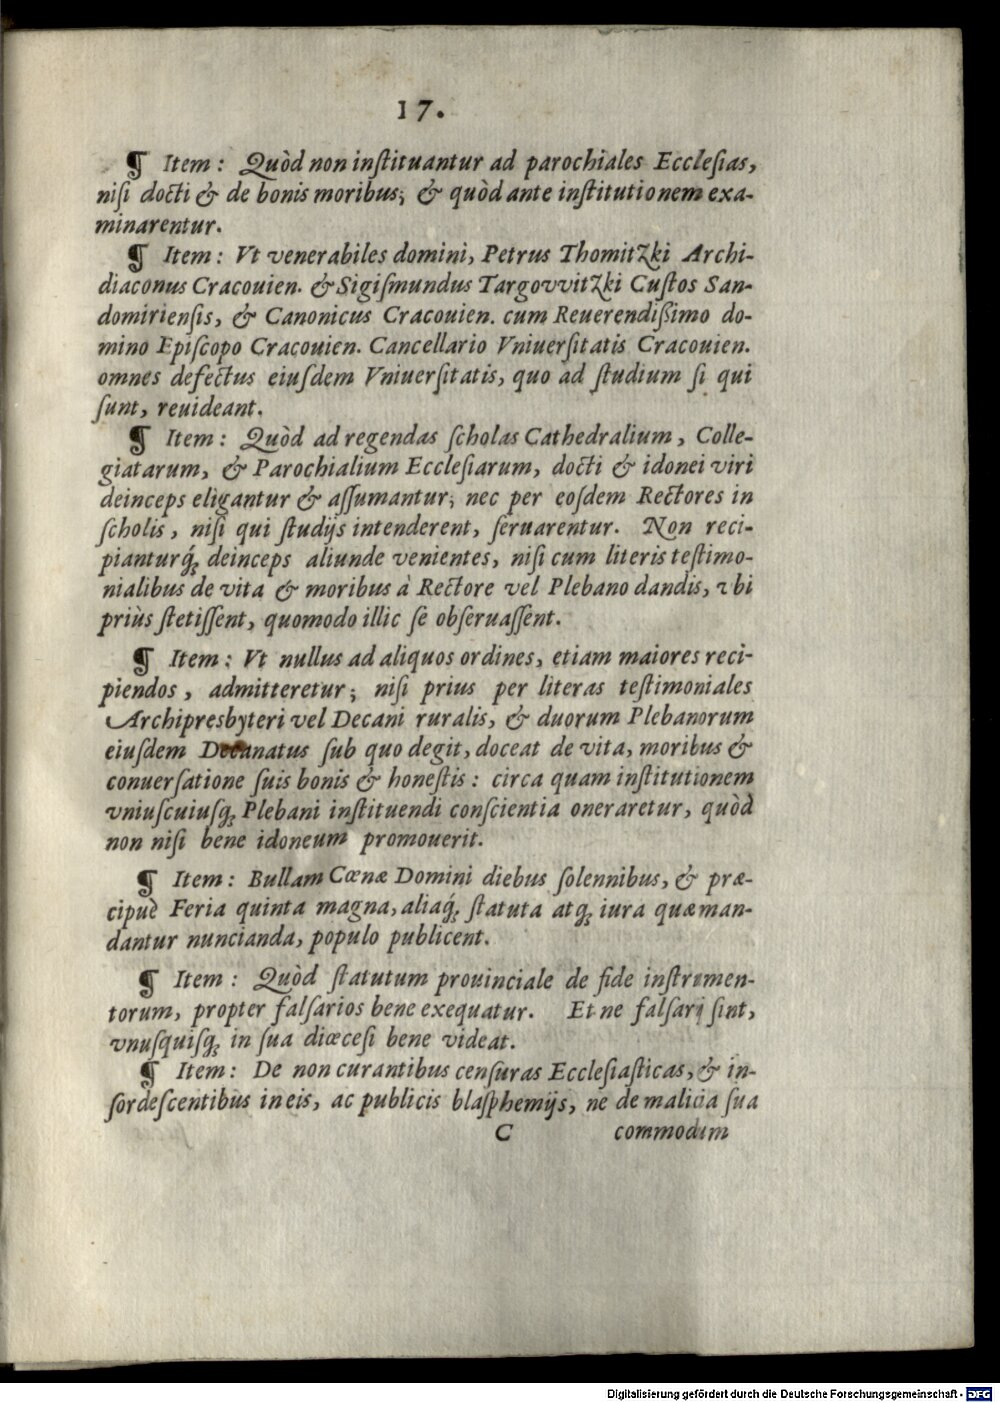 17.
¶ Item: Quòd non instituantur ad parochiales Ecclesias,
nisi docti & de bonis moribus; & quòd ante institutionem exa-
minarentur.
¶ Item: Vt venerabiles domini, Petrus Thomitzki Archi-
diaconus Cracouien. & Sigismundus Targovvitzki Custos San-
domiriensis, & Canonicus Cracouien. cum Reuerendißimo do-
mino Episcopo Cracouien. Cancellario Vniuersitatis Cracouien.
omnes defectus eiusdem Vniuersitatis, quo ad studium si qui
sunt, reuideant.
¶ Item: Quòd ad regendas scholas Cathedralium, Colle-
giatarum, & Parochialium Ecclesiarum, docti & idonei viri
deinceps eligantur & assumantur; nec per eosdem Rectores in
scholis, nisi qui studijs intenderent, seruarentur. Non reci-
pianturq́; deinceps aliunde venientes, nisi cum literis testimo-
nialibus de vita & moribus à Rectore vel Plebano dandis, vbi
priùs stetissent, quomodo illic se obseruassent.
¶ Item: Vt nullus ad aliquos ordines, etiam maiores reci-
piendos, admitteretur; nisi prius per literas testimoniales
Archipresbyteri vel Decani ruralis, & duorum Plebanorum
eiusdem Decanatus sub quo degit, doceat de vita, moribus &
conuersatione suis bonis & honestis: circa quam institutionem
vniuscuiusq; Plebani instituendi conscientia oneraretur, quòd
non nisi bene idoneum promouerit.
¶ Item: Bullam Cœnæ Domini diebus solennibus, & præ-
cipuè Feria quinta magna, aliaq́; statuta atq; iura quæ man-
dantur nuncianda, populo publicent.
¶ Item: Quòd statutum prouinciale de fide instrumen-
torum, propter falsarios bene exequatur. Et ne falsarij sint,
vnusquisq; in sua diœcesi bene videat.
¶ Item: De non curantibus censuras Ecclesiasticas, & in-
sordescentibus in eis, ac publicis blasphemijs, ne de malicia sua
C commodum
Digitalisierung gefördert durch die Deutsche Forschungsgemeinschaft - DFG